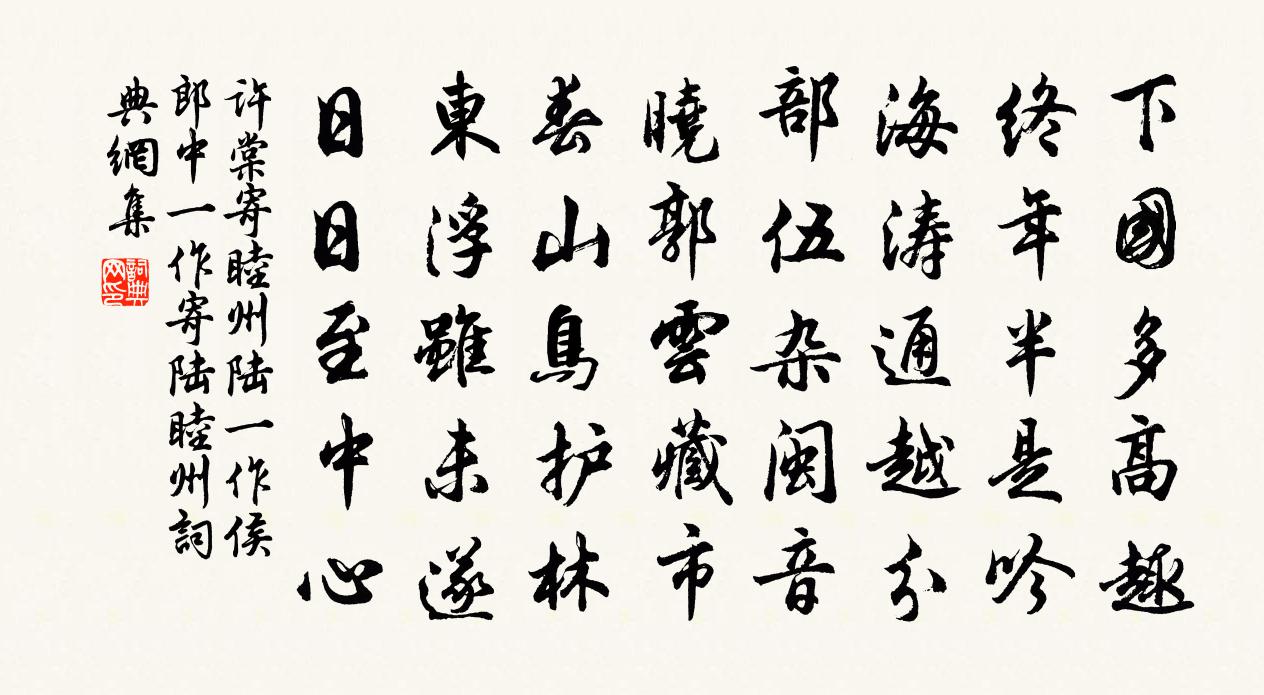 下國多高趣
終年半是吟
海涛通越分
部伍杂閩音
曉郭雲藏市
春山鳥护林
東浮雖未遂
日日至中心
許棠寄睦州陆一作侯
郎中一作寄陆睦州詞
典網集
詞典
网印